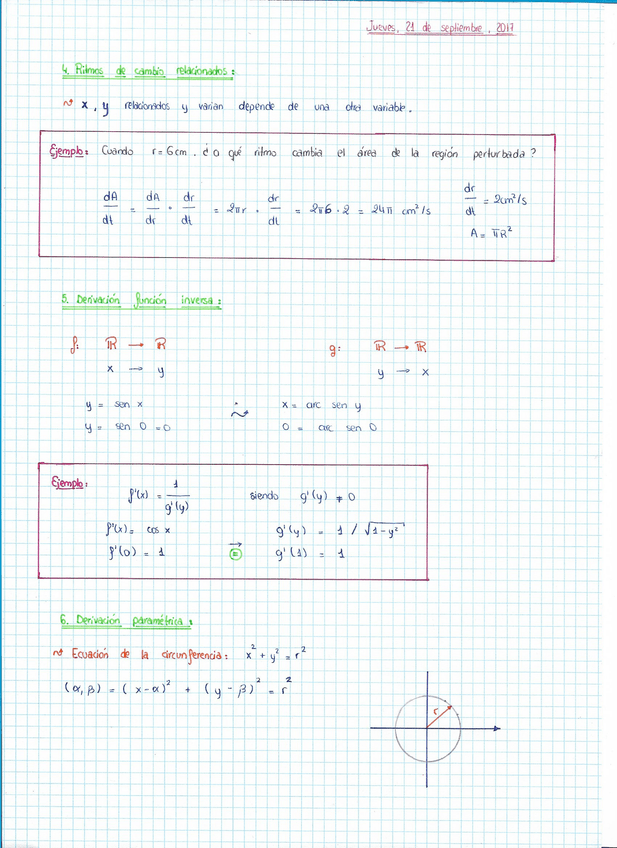 Jueves, 21 de septiembre, 2017
4. Ritmos de cambio relacionados:
x, y relacionados y varian depende de una otra variable.
Ejemplo: Cuando r = 6 cm. ¿ a qué ritmo cambia el área de la región perturbada ?
dA/dt = dA/dr · dr/dt = 2πr · dr/dt = 2π6 · 2 = 24π cm²/s
dr/dt = 2cm²/s
A = πR²
5. Derivación función inversa:
f: ℝ → ℝ g: ℝ → ℝ
x → y y → x
y = sen x x = arc sen y
y = sen 0 = 0 0 = arc sen 0
Ejemplo:
f'(x) = 1/g'(y) siendo g'(y) ≠ 0
f'(x) = cos x g'(y) = 1 / √1-y²
f'(0) = 1 → = g'(1) = 1
6. Derivación paramétrica:
Ecuación de la circunferencia: x² + y² = r²
(α, β) = (x-α)² + (y-β)² = r²
r